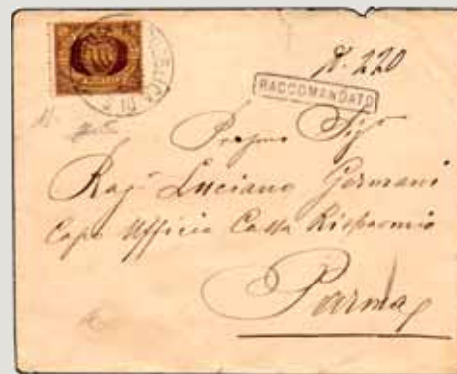 REPUBBLICA DI S
N. 220
RACCOMANDATO
Pregmo Sigr
Ragr Luciano Germani
Capo Ufficio Cassa Risparmio
Parma